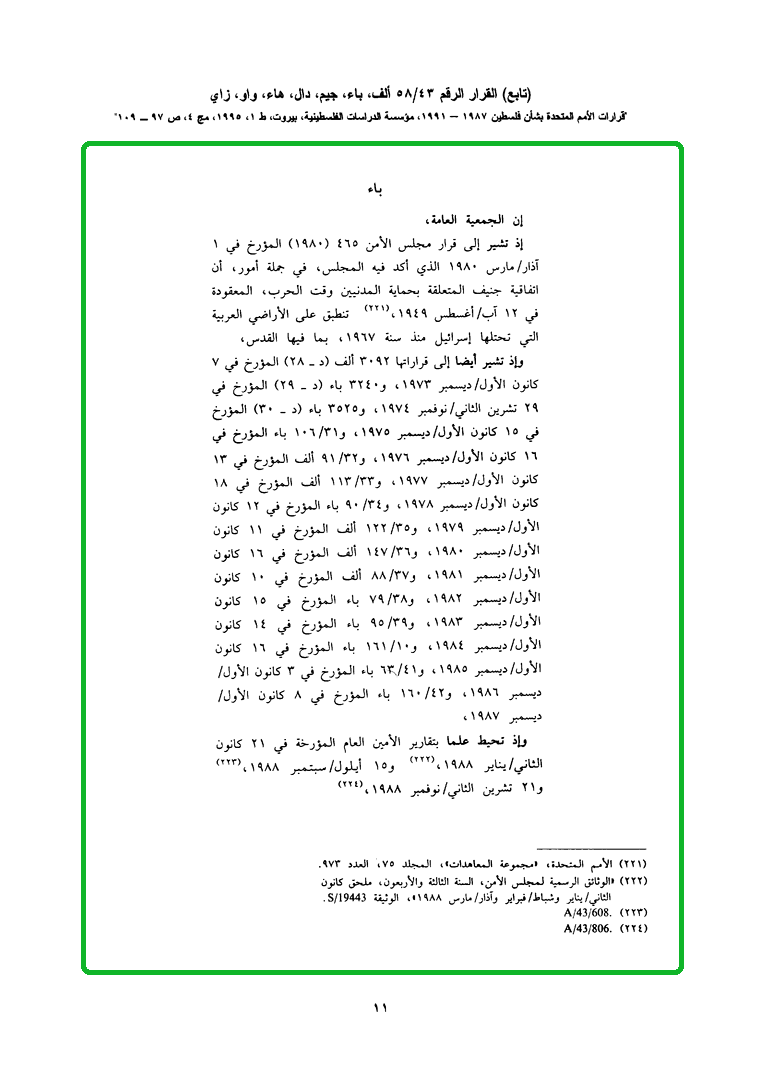 (تابع) القرار الرقم ٥٨/٤٣ ألف، باء، جيم، دال، هاء، واو، زاي
"قرارات الأمم المتحدة بشأن فلسطين ١٩٨٧ – ١٩٩١، مؤسسة الدراسات الفلسطينية، بيروت، ط ١، ١٩٩٥، مج ٤، ص ٩٧ – ١٠٩"
باء
إن الجمعية العامة،
إذ تشير إلى قرار مجلس الأمن ٤٦٥ (١٩٨٠) المؤرخ في ١
آذار/مارس ١٩٨٠ الذي أكد فيه المجلس، في جملة أمور، أن
اتفاقية جنيف المتعلقة بحماية المدنيين وقت الحرب، المعقودة
في ١٢ آب/أغسطس ١٩٤٩،(٢٢١) تنطبق على الأراضي العربية
التي تحتلها إسرائيل منذ سنة ١٩٦٧، بما فيها القدس،
وإذ تشير أيضا إلى قراراتها ٣٠٩٢ ألف (د ـ ٢٨) المؤرخ في ٧
كانون الأول/ديسمبر ١٩٧٣، و٣٢٤٠ باء (د ـ ٢٩) المؤرخ في
٢٩ تشرين الثاني/نوفمبر ١٩٧٤، و٣٥٢٥ باء (د ـ ٣٠) المؤرخ
في ١٥ كانون الأول/ديسمبر ١٩٧٥، و١٠٦/٣١ باء المؤرخ في
١٦ كانون الأول/ديسمبر ١٩٧٦، و٩١/٣٢ ألف المؤرخ في ١٣
كانون الأول/ديسمبر ١٩٧٧، و١١٣/٣٣ ألف المؤرخ في ١٨
كانون الأول/ديسمبر ١٩٧٨، و٩٠/٣٤ باء المؤرخ في ١٢ كانون
الأول/ديسمبر ١٩٧٩، و١٢٢/٣٥ ألف المؤرخ في ١١ كانون
الأول/ديسمبر ١٩٨٠، و١٤٧/٣٦ ألف المؤرخ في ١٦ كانون
الأول/ديسمبر ١٩٨١، و٨٨/٣٧ ألف المؤرخ في ١٠ كانون
الأول/ديسمبر ١٩٨٢، و٧٩/٣٨ باء المؤرخ في ١٥ كانون
الأول/ديسمبر ١٩٨٣، و٩٥/٣٩ باء المؤرخ في ١٤ كانون
الأول/ديسمبر ١٩٨٤، و١٦١/١٠ باء المؤرخ في ١٦ كانون
الأول/ديسمبر ١٩٨٥، و٦٣/٤١ باء المؤرخ في ٣ كانون الأول/
ديسمبر ١٩٨٦، و١٦٠/٤٢ باء المؤرخ في ٨ كانون الأول/
ديسمبر ١٩٨٧،
وإذ تحيط علما بتقارير الأمين العام المؤرخة في ٢١ كانون
الثاني/يناير ١٩٨٨،(٢٢٢) و١٥ أيلول/سبتمبر ١٩٨٨،(٢٢٣)
و٢١ تشرين الثاني/نوفمبر ١٩٨٨،(٢٢٤)
(٢٢١) الأمم المتحدة، «مجموعة المعاهدات»، المجلد ٧٥، العدد ٩٧٣.
(٢٢٢) «الوثائق الرسمية لمجلس الأمن، السنة الثالثة والأربعون، ملحق كانون
الثاني/يناير وشباط/فبراير وآذار/مارس ١٩٨٨»، الوثيقة S/19443.
(٢٢٣) A/43/608.
(٢٢٤) A/43/806.
١١